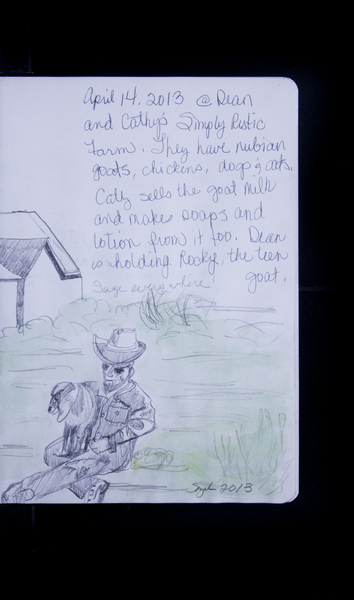 April 14, 2013 @ Dean
and Cathy's Simply Rustic
Farm. They have nubian
goats, chickens, dogs & cats.
Caty sells the goat milk
and makes soaps and
lotion from it too. Dean
is holding Rocky, the teen
goat.
Sage everywhere!
2013